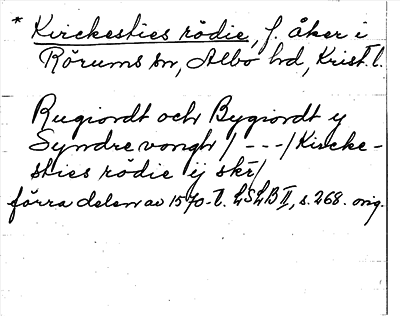 * Kirckesties rödie, f. åker i
Rörums sn, Albo hd, Krist. l.
Rugiordt och Bygiordt y
Syndre vongh / --- / Kircke-
sties rödie ij skr/
förra delen av 1570-t. LSLB II, s. 268. orig.